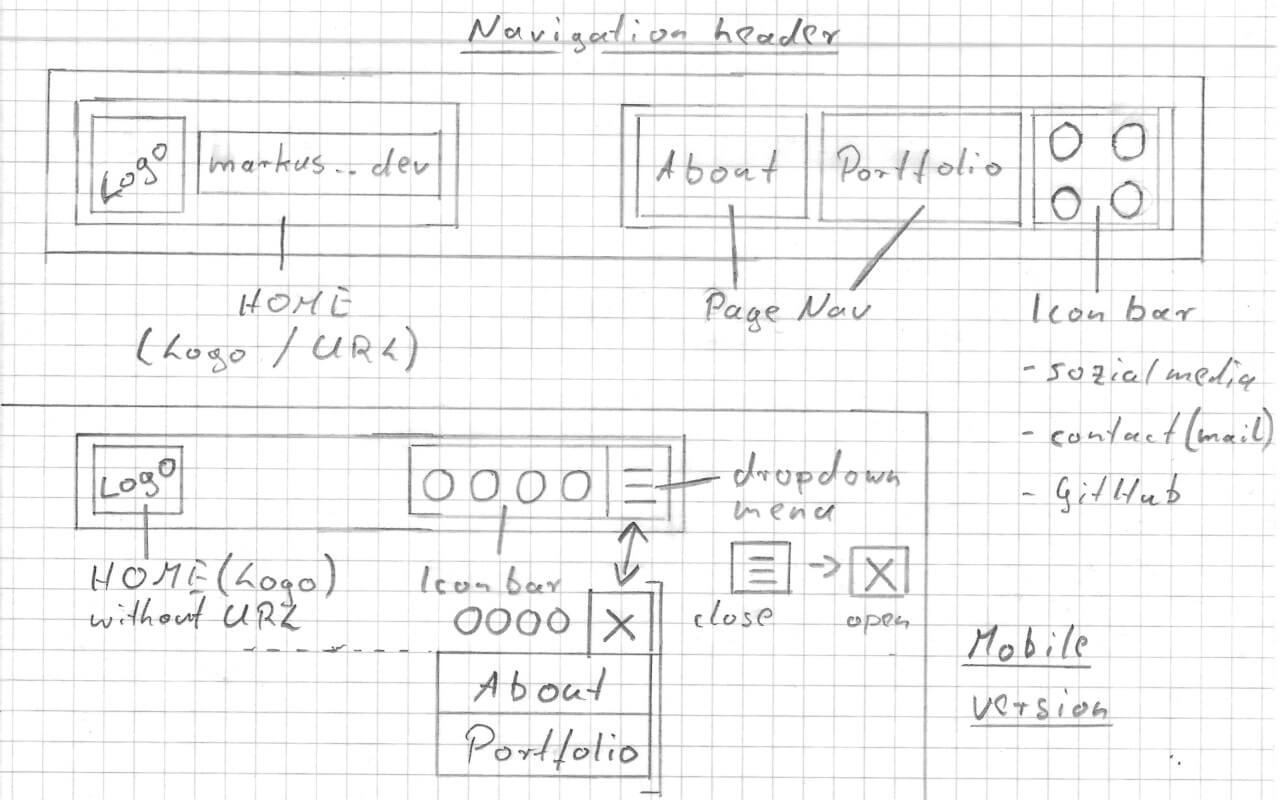 Navigation header
Logo
markus...dev
About
Portfolio
HOME
(Logo / URL)
Page Nav
Icon bar
- sozial media
- contact (mail)
- GitHub
Logo
dropdown
menu
HOME (Logo)
without URL
Icon bar
X
close
->
X
open
About
Portfolio
Mobile
version